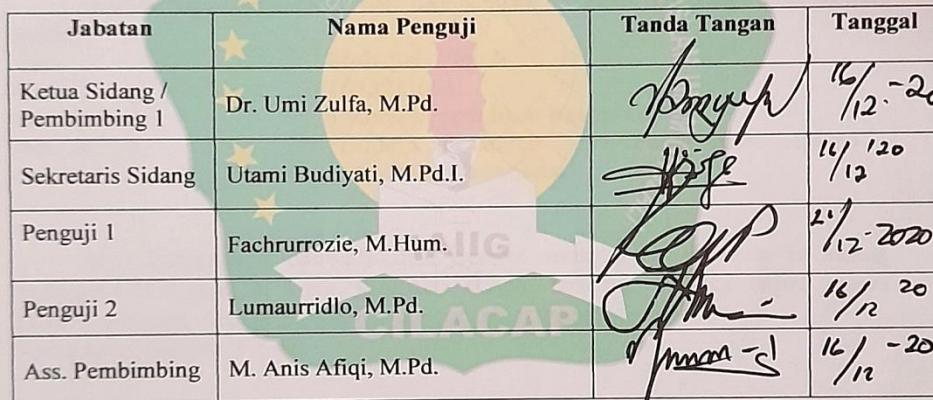 Jabatan Nama Penguji Tanda Tangan Tanggal
Ketua Sidang /
Pembimbing 1 Dr. Umi Zulfa, M.Pd. 16/12.-20
Sekretaris Sidang Utami Budiyati, M.Pd.I. 16/12 '20
Penguji 1 Fachrurrozie, M.Hum. /12-2020
IAIIG
Penguji 2 Lumaurridlo, M.Pd. 16/12 20
CILACAP
Ass. Pembimbing M. Anis Afiqi, M.Pd. 16/12 -20